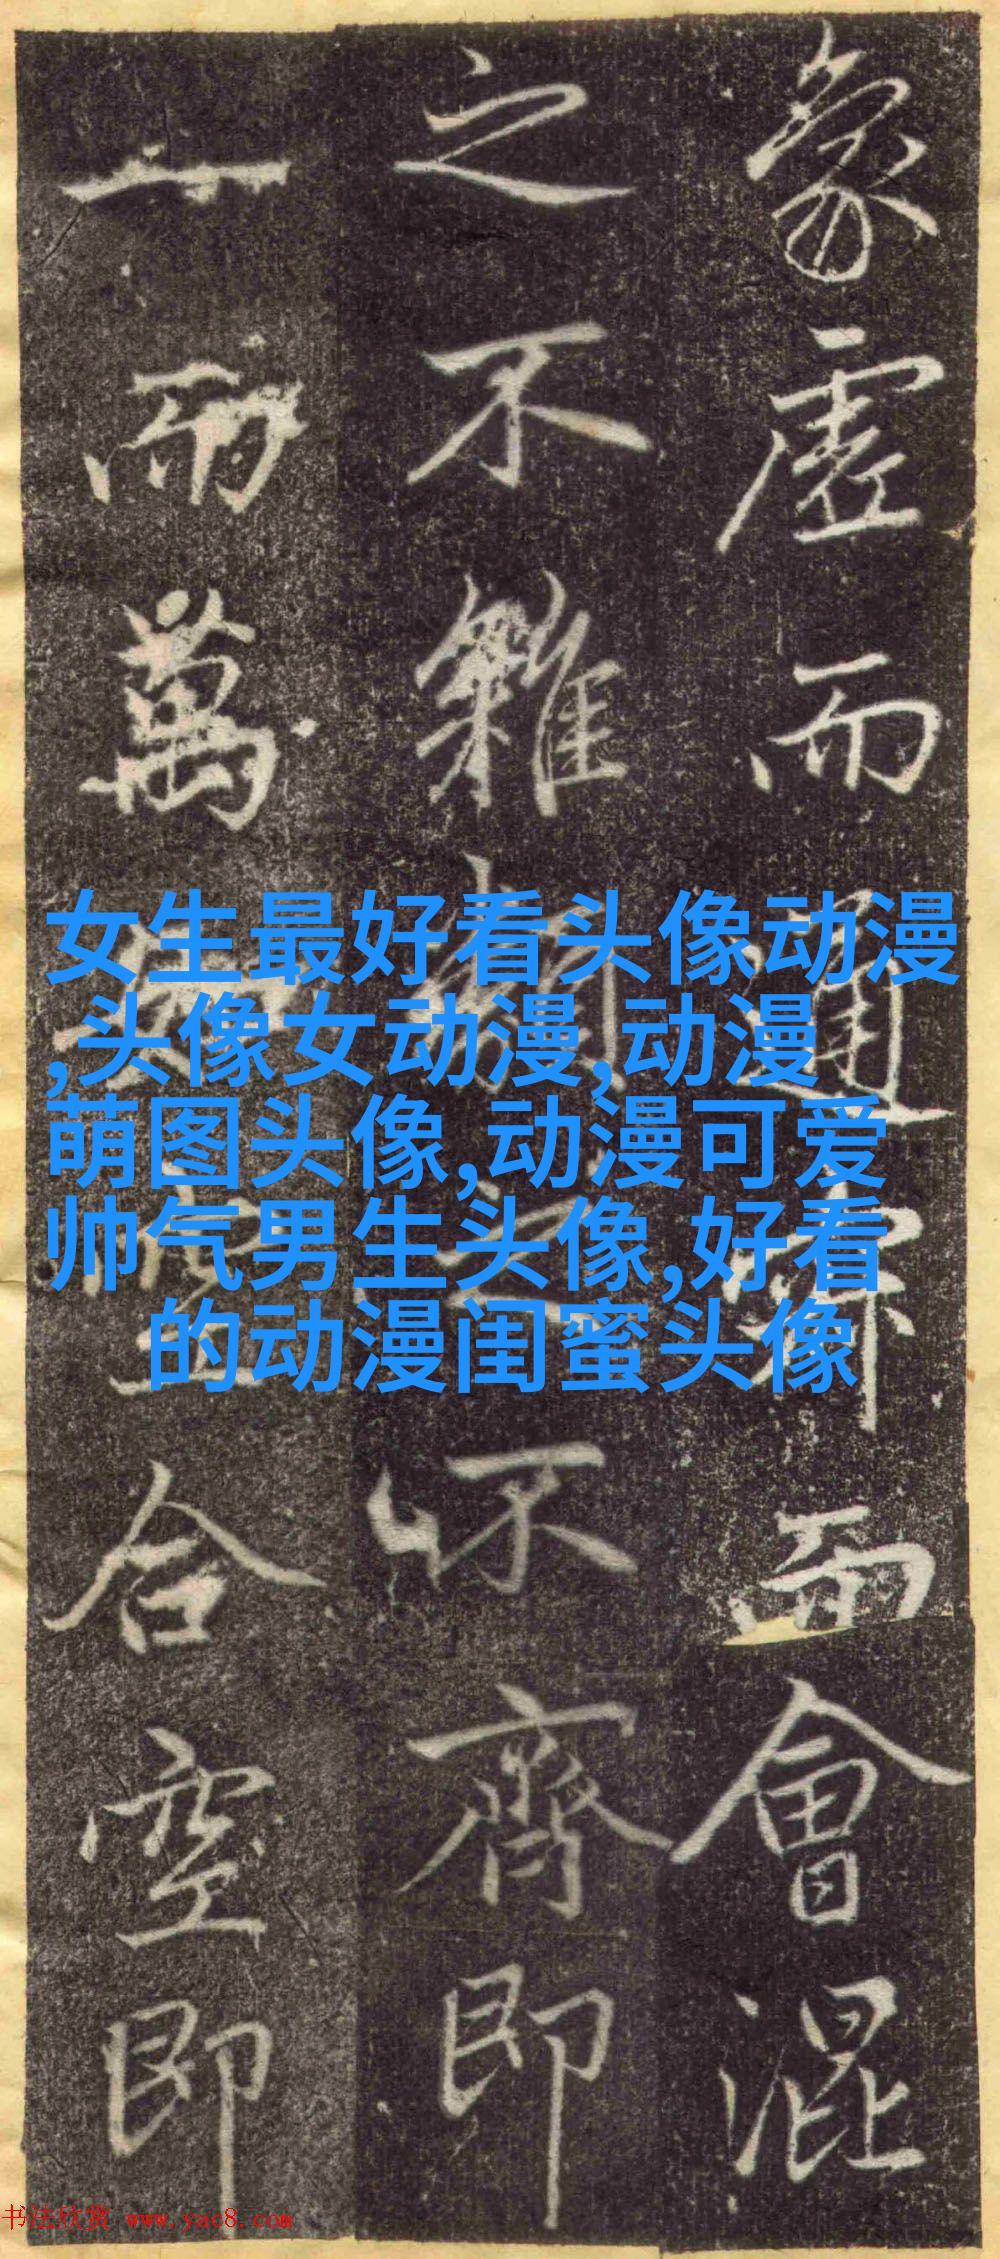 象虛而通而會混
之不雜之不齊即
一而萬合空即
女生最好看头像动漫
,头像女动漫,动漫
萌图头像,动漫可爱
帅气男生头像,好看
的动漫闺蜜头像
书法欣赏 www.yac8.com